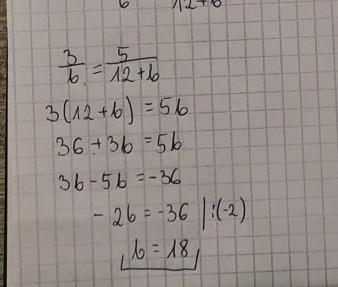 6 12+6
3/b = 5/12+b
3(12+b) = 5b
36 + 3b = 5b
3b - 5b = -36
- 2b = -36 |:(-2)
b = 18